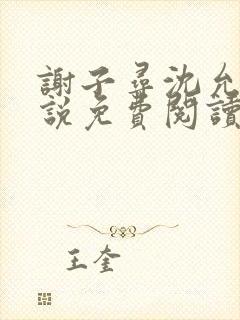 謝子尋沈允
說免費閱讀
王奎